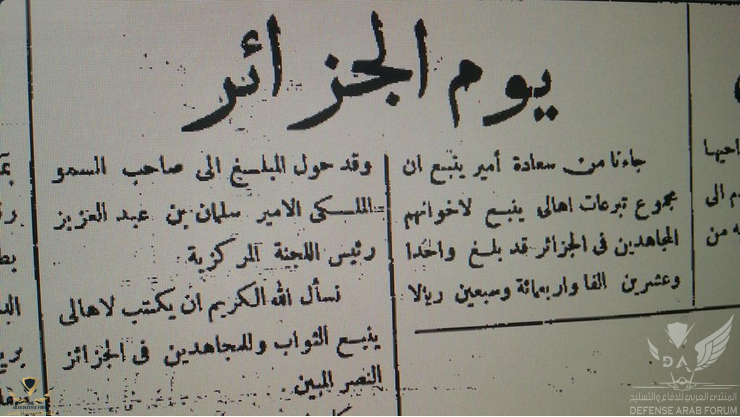 يوم الجزائر
جاءنا من سعادة أمير ينبع ان
مجموع تبرعات اهالى ينبع لاخوانهم
المجاهدين فى الجزائر قد بلغ واحدا
وعشرين الفا واربعمائة وسبعين ريالا
وقد حول المبلغ الى صاحب السمو
الملكى الامير سلمان بن عبد العزيز
رئيس اللجنة المركزية.
نسأل الله الكريم ان يكتب لاهالى
ينبع الثواب وللمجاهدين فى الجزائر
النصر المبين.
احيها
م الى
ه من
DA
المنتدى العربي للدفاع والتسليح
DEFENSE ARAB FORUM